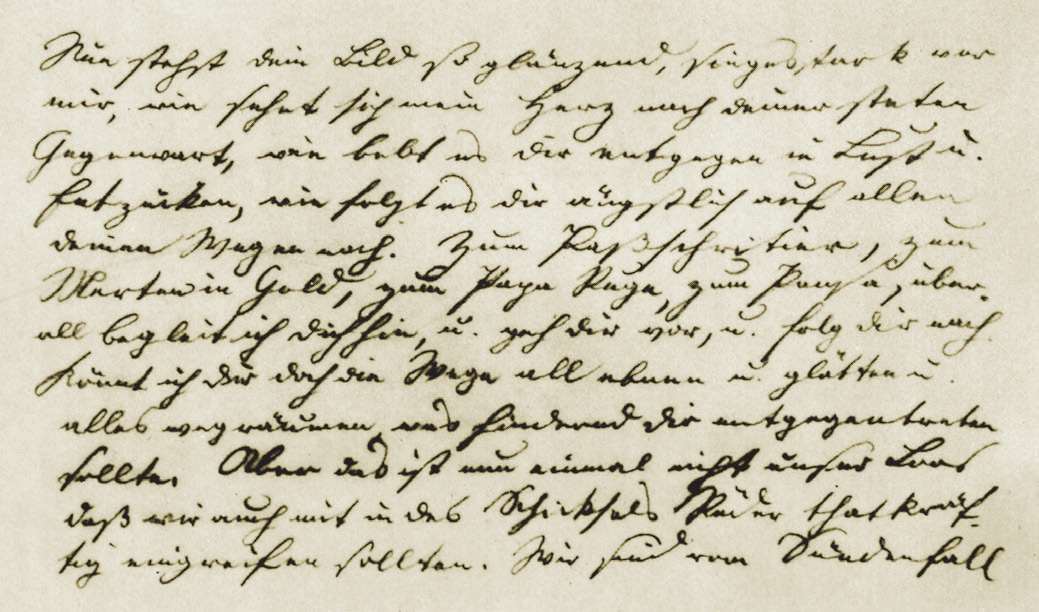 Nun stehst dein Bild so glänzend, siegesstark vor
mir, wie sehnt sich mein Herz nach deiner steten
Gegenwart, wie bebt es dir entgegen in Lust u.
Entzücken, wie folgt es dir ängstlich auf allen
deinen Wegen nach. Zum Paßschritier, zum
Merten in Gold, zum Papa Ruge, zum Pansa, über-
all begleit ich dich hin, u. geh dir vor, u. folg dir nach.
Könnt ich dir doch die Wege all ebnen u. glätten u.
alles wegräumen, was hindernd dir entgegentreten
sollte. Aber das ist nun einmal nicht unser Loos
daß wir auch mit in des Schicksals Räder thatkräf-
tig eingreifen sollten. Wir sind vom Sündenfall